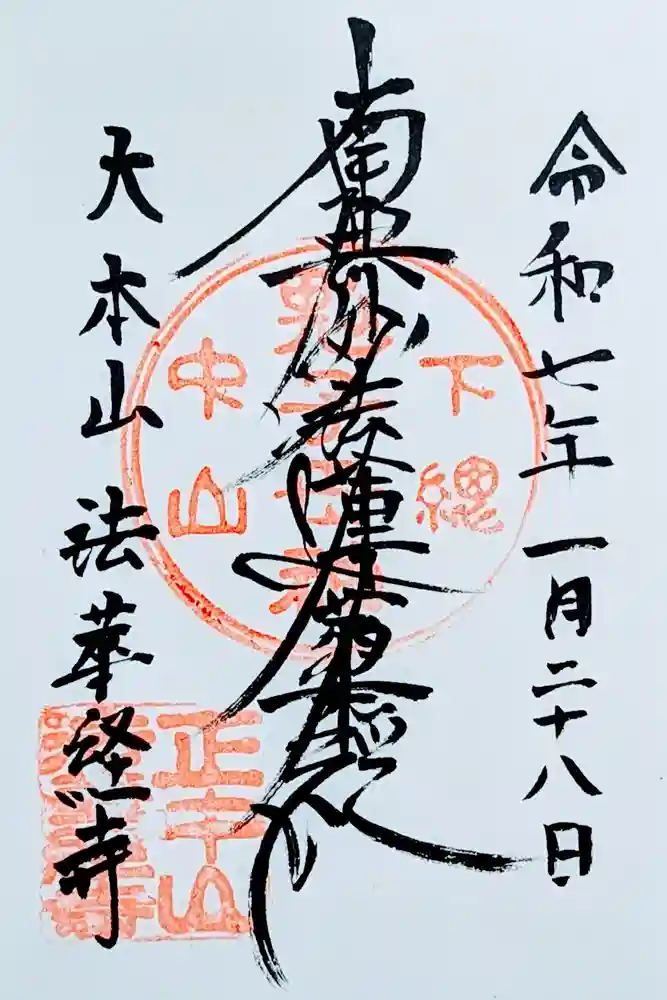 令和七年一月二十八日
南無妙法蓮華経
大本山 法華経寺
下総
中山
正中山
法華経寺